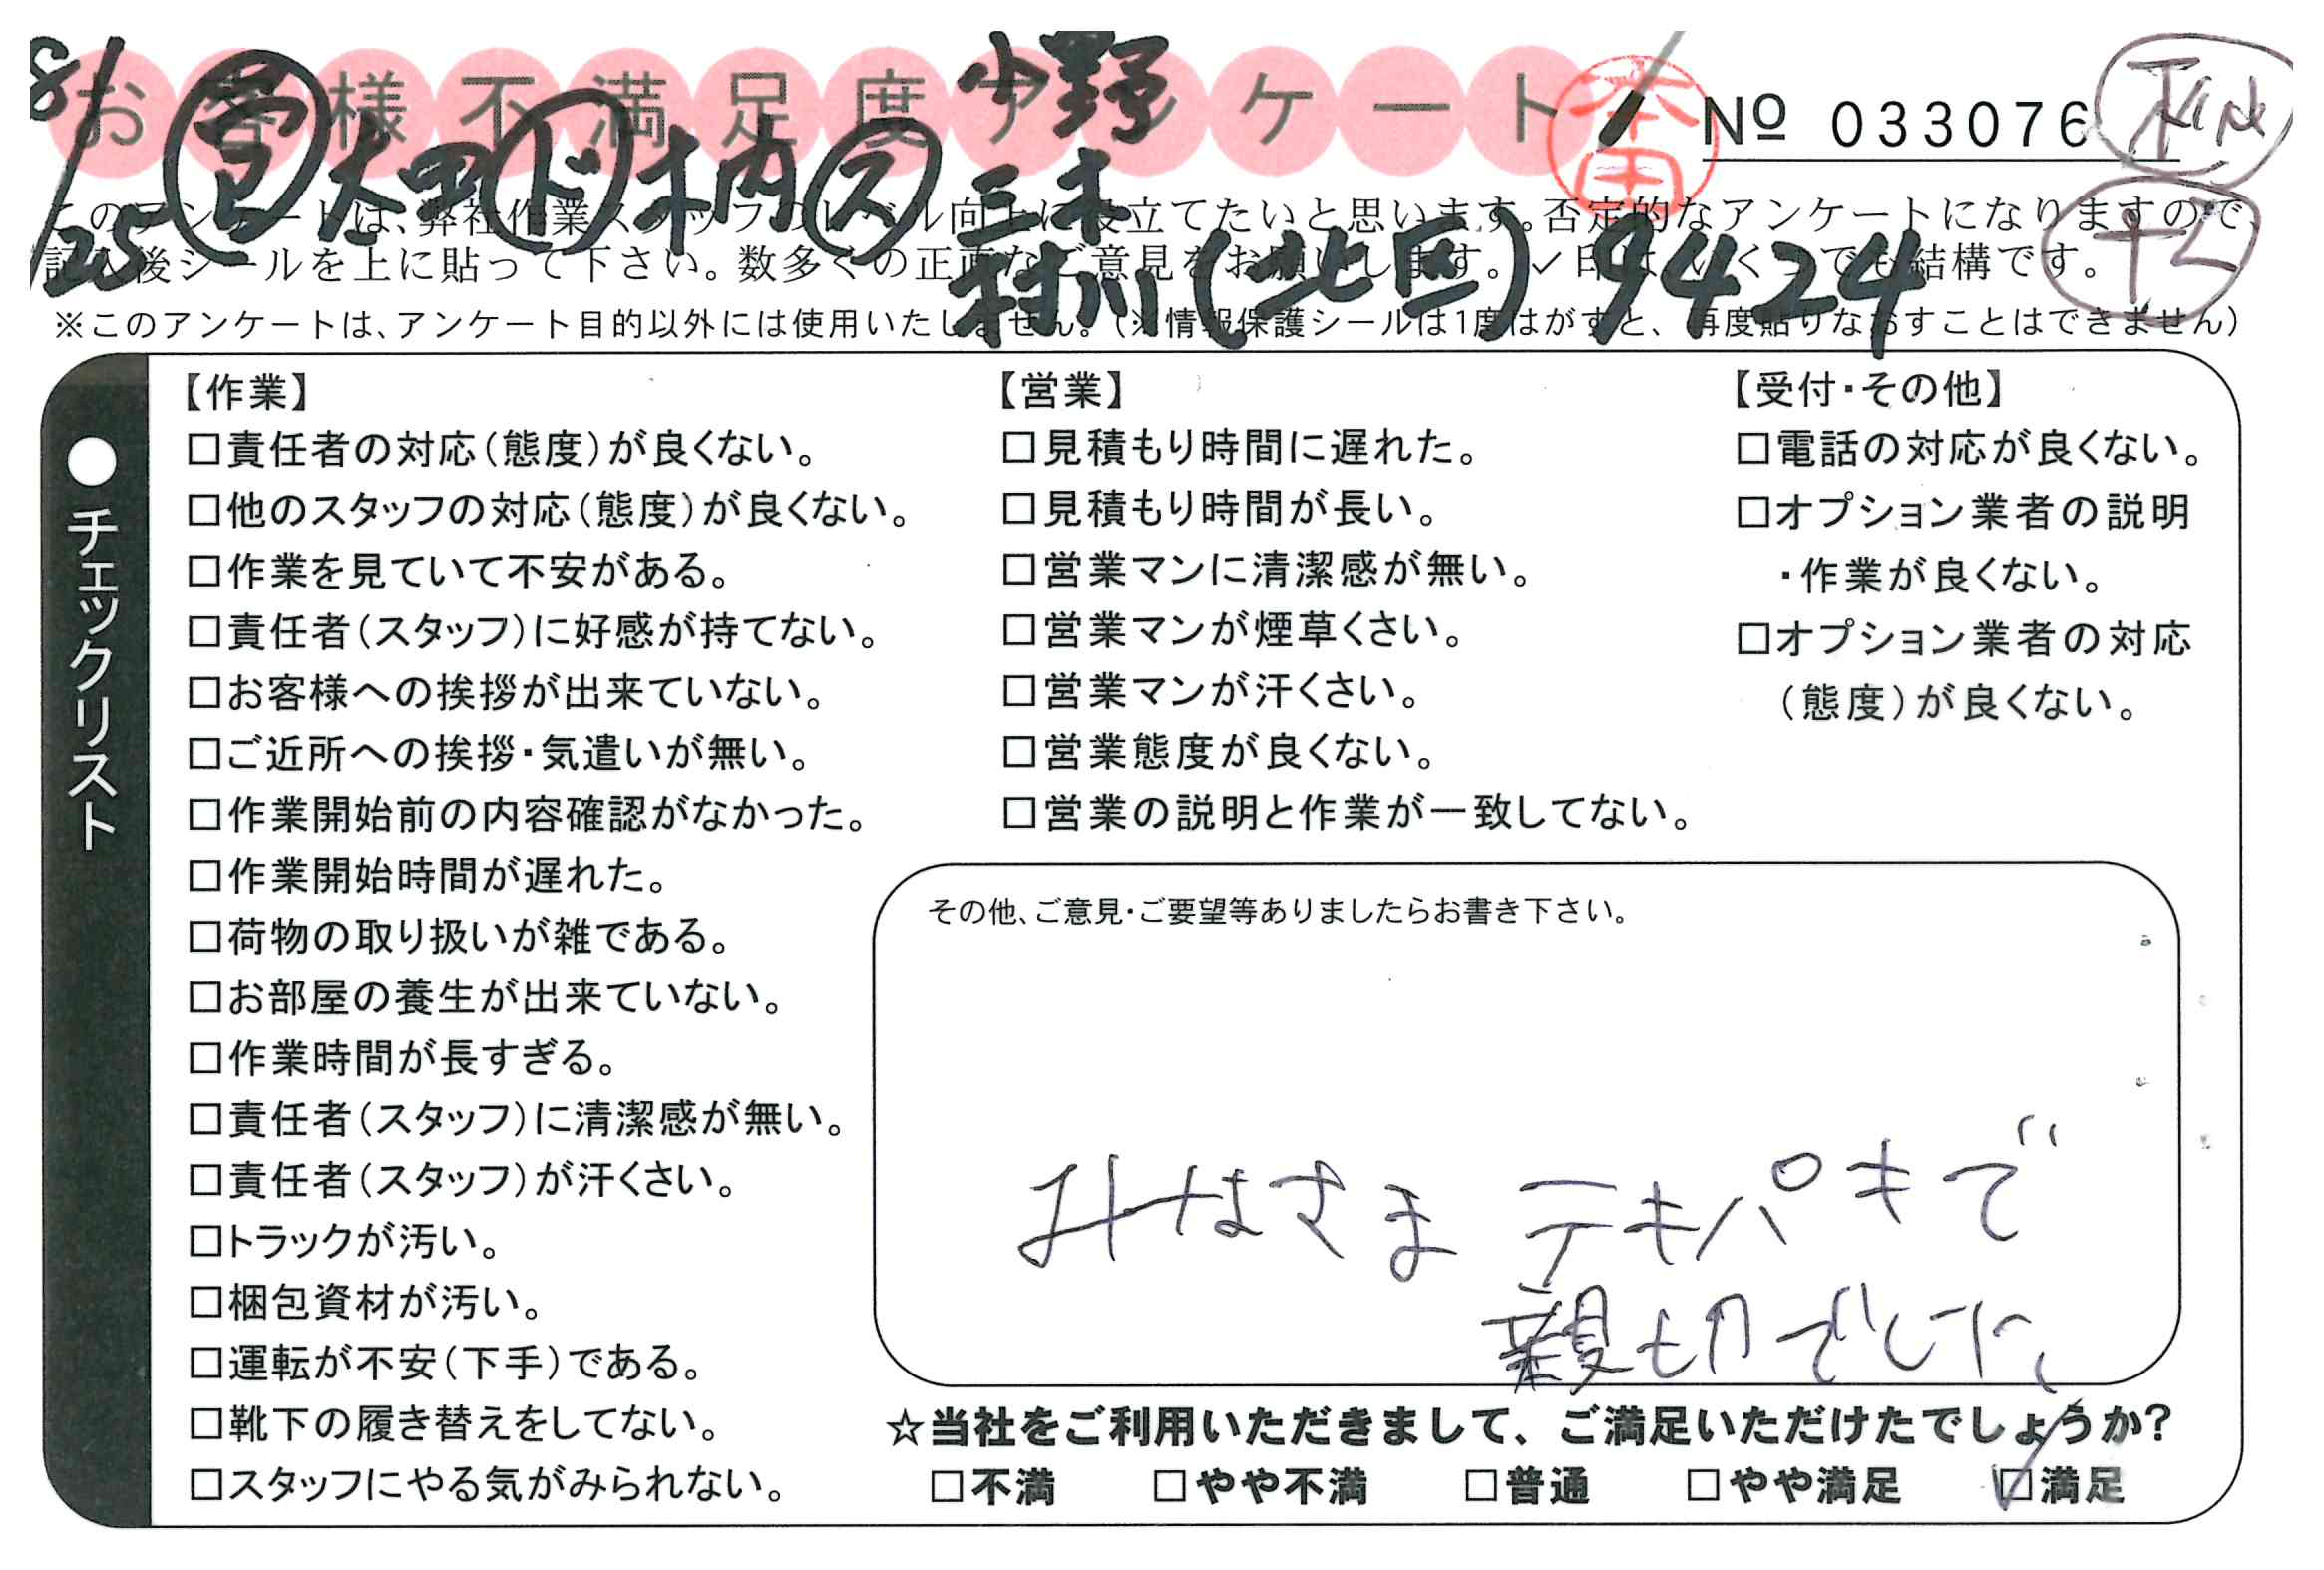 お客様不満足度アンケート
№ 033076
8/25 営 太田 ド 木内 ス 小野
三木
村川(北区) 9424
本田
このアンケートは、弊社作業スタッフのレベル向上に役立てたいと思います。否定的なアンケートになりますので
記入後シールを上に貼って下さい。数多くの正直なご意見をお願いします。✓印は、いくつでも結構です。
※このアンケートは、アンケート目的以外には使用いたしません。(※情報保護シールは1度はがすと、再度貼りなおすことはできません)
●チェックリスト
【作業】
□責任者の対応(態度)が良くない。
□他のスタッフの対応(態度)が良くない。
□作業を見ていて不安がある。
□責任者(スタッフ)に好感が持てない。
□お客様への挨拶が出来ていない。
□ご近所への挨拶・気遣いが無い。
□作業開始前の内容確認がなかった。
□作業開始時間が遅れた。
□荷物の取り扱いが雑である。
□お部屋の養生が出来ていない。
□作業時間が長すぎる。
□責任者(スタッフ)に清潔感が無い。
□責任者(スタッフ)が汗くさい。
□トラックが汚い。
□梱包資材が汚い。
□運転が不安(下手)である。
□靴下の履き替えをしてない。
□スタッフにやる気がみられない。
【営業】
□見積もり時間に遅れた。
□見積もり時間が長い。
□営業マンに清潔感が無い。
□営業マンが煙草くさい。
□営業マンが汗くさい。
□営業態度が良くない。
□営業の説明と作業が一致してない。
【受付・その他】
□電話の対応が良くない。
□オプション業者の説明
・作業が良くない。
□オプション業者の対応
(態度)が良くない。
その他、ご意見・ご要望等ありましたらお書き下さい。
みなさま テキパキで
親切でした、
☆当社をご利用いただきまして、ご満足いただけたでしょうか?
□不満 □やや不満 □普通 □やや満足 ☑満足